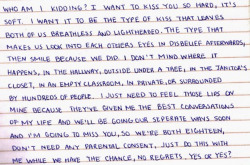 WHO AM I KIDDING? I WANT TO KISS YOU SO HARD, IT'S
SOFT. I WANT IT TO BE THE TYPE OF KISS THAT LEAVES
BOTH OF US BREATHLESS AND LIGHTHEADED. THE TYPE THAT
MAKES US LOOK INTO EACH OTHERS EYES IN DISBELIEF AFTERWARDS,
THEN SMILE BECAUSE WE DID. I DON'T MIND WHERE IT
HAPPENS, IN THE HALLWAY, OUTSIDE UNDER A TREE, IN THE JANITOR'S
CLOSET, IN AN EMPTY CLASSROOM, IN PRIVATE, OR SURROUNDED
BY HUNDREDS OF PEOPLE. I JUST NEED TO FEEL THOSE LIPS ON
MINE BECAUSE THEY'VE GIVEN ME THE BEST CONVERSATIONS
OF MY LIFE AND WE'LL BE GOING OUR SEPERATE WAYS SOON
AND I'M GOING TO MISS YOU, SO WE'RE BOTH EIGHTEEN,
DON'T NEED ANY PARENTAL CONSENT, JUST DO THIS WITH
ME WHILE WE HAVE THE CHANCE, NO REGRETS, YES OR YES?